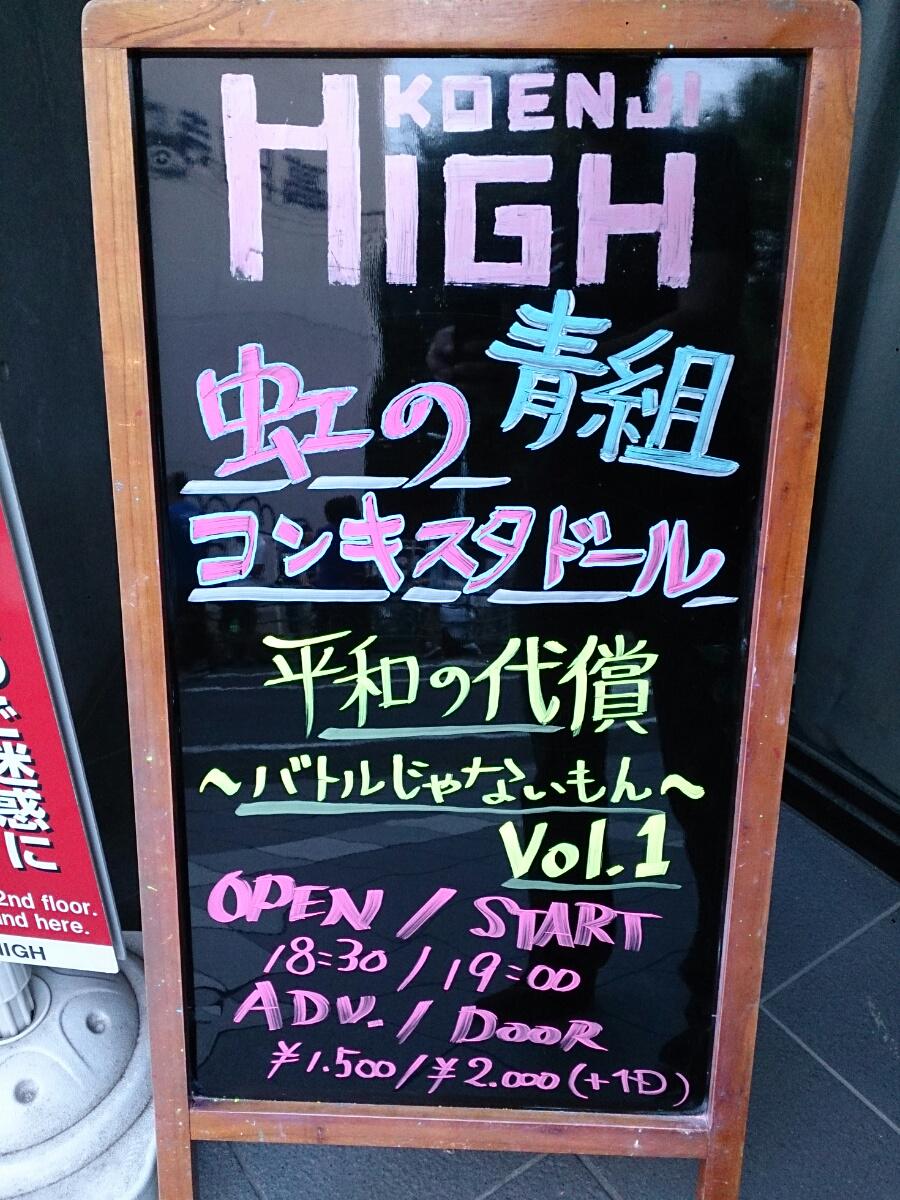 KOENJI
HIGH
虹の青組
コンキスタドール
平和の代償
～バトルじゃないもん～
Vol.1
OPEN / START
18:30 / 19:00
ADV. / DOOR
¥1.500 / ¥2.000 (+1D)
ご迷惑に
2nd floor.
and here.
HIGH